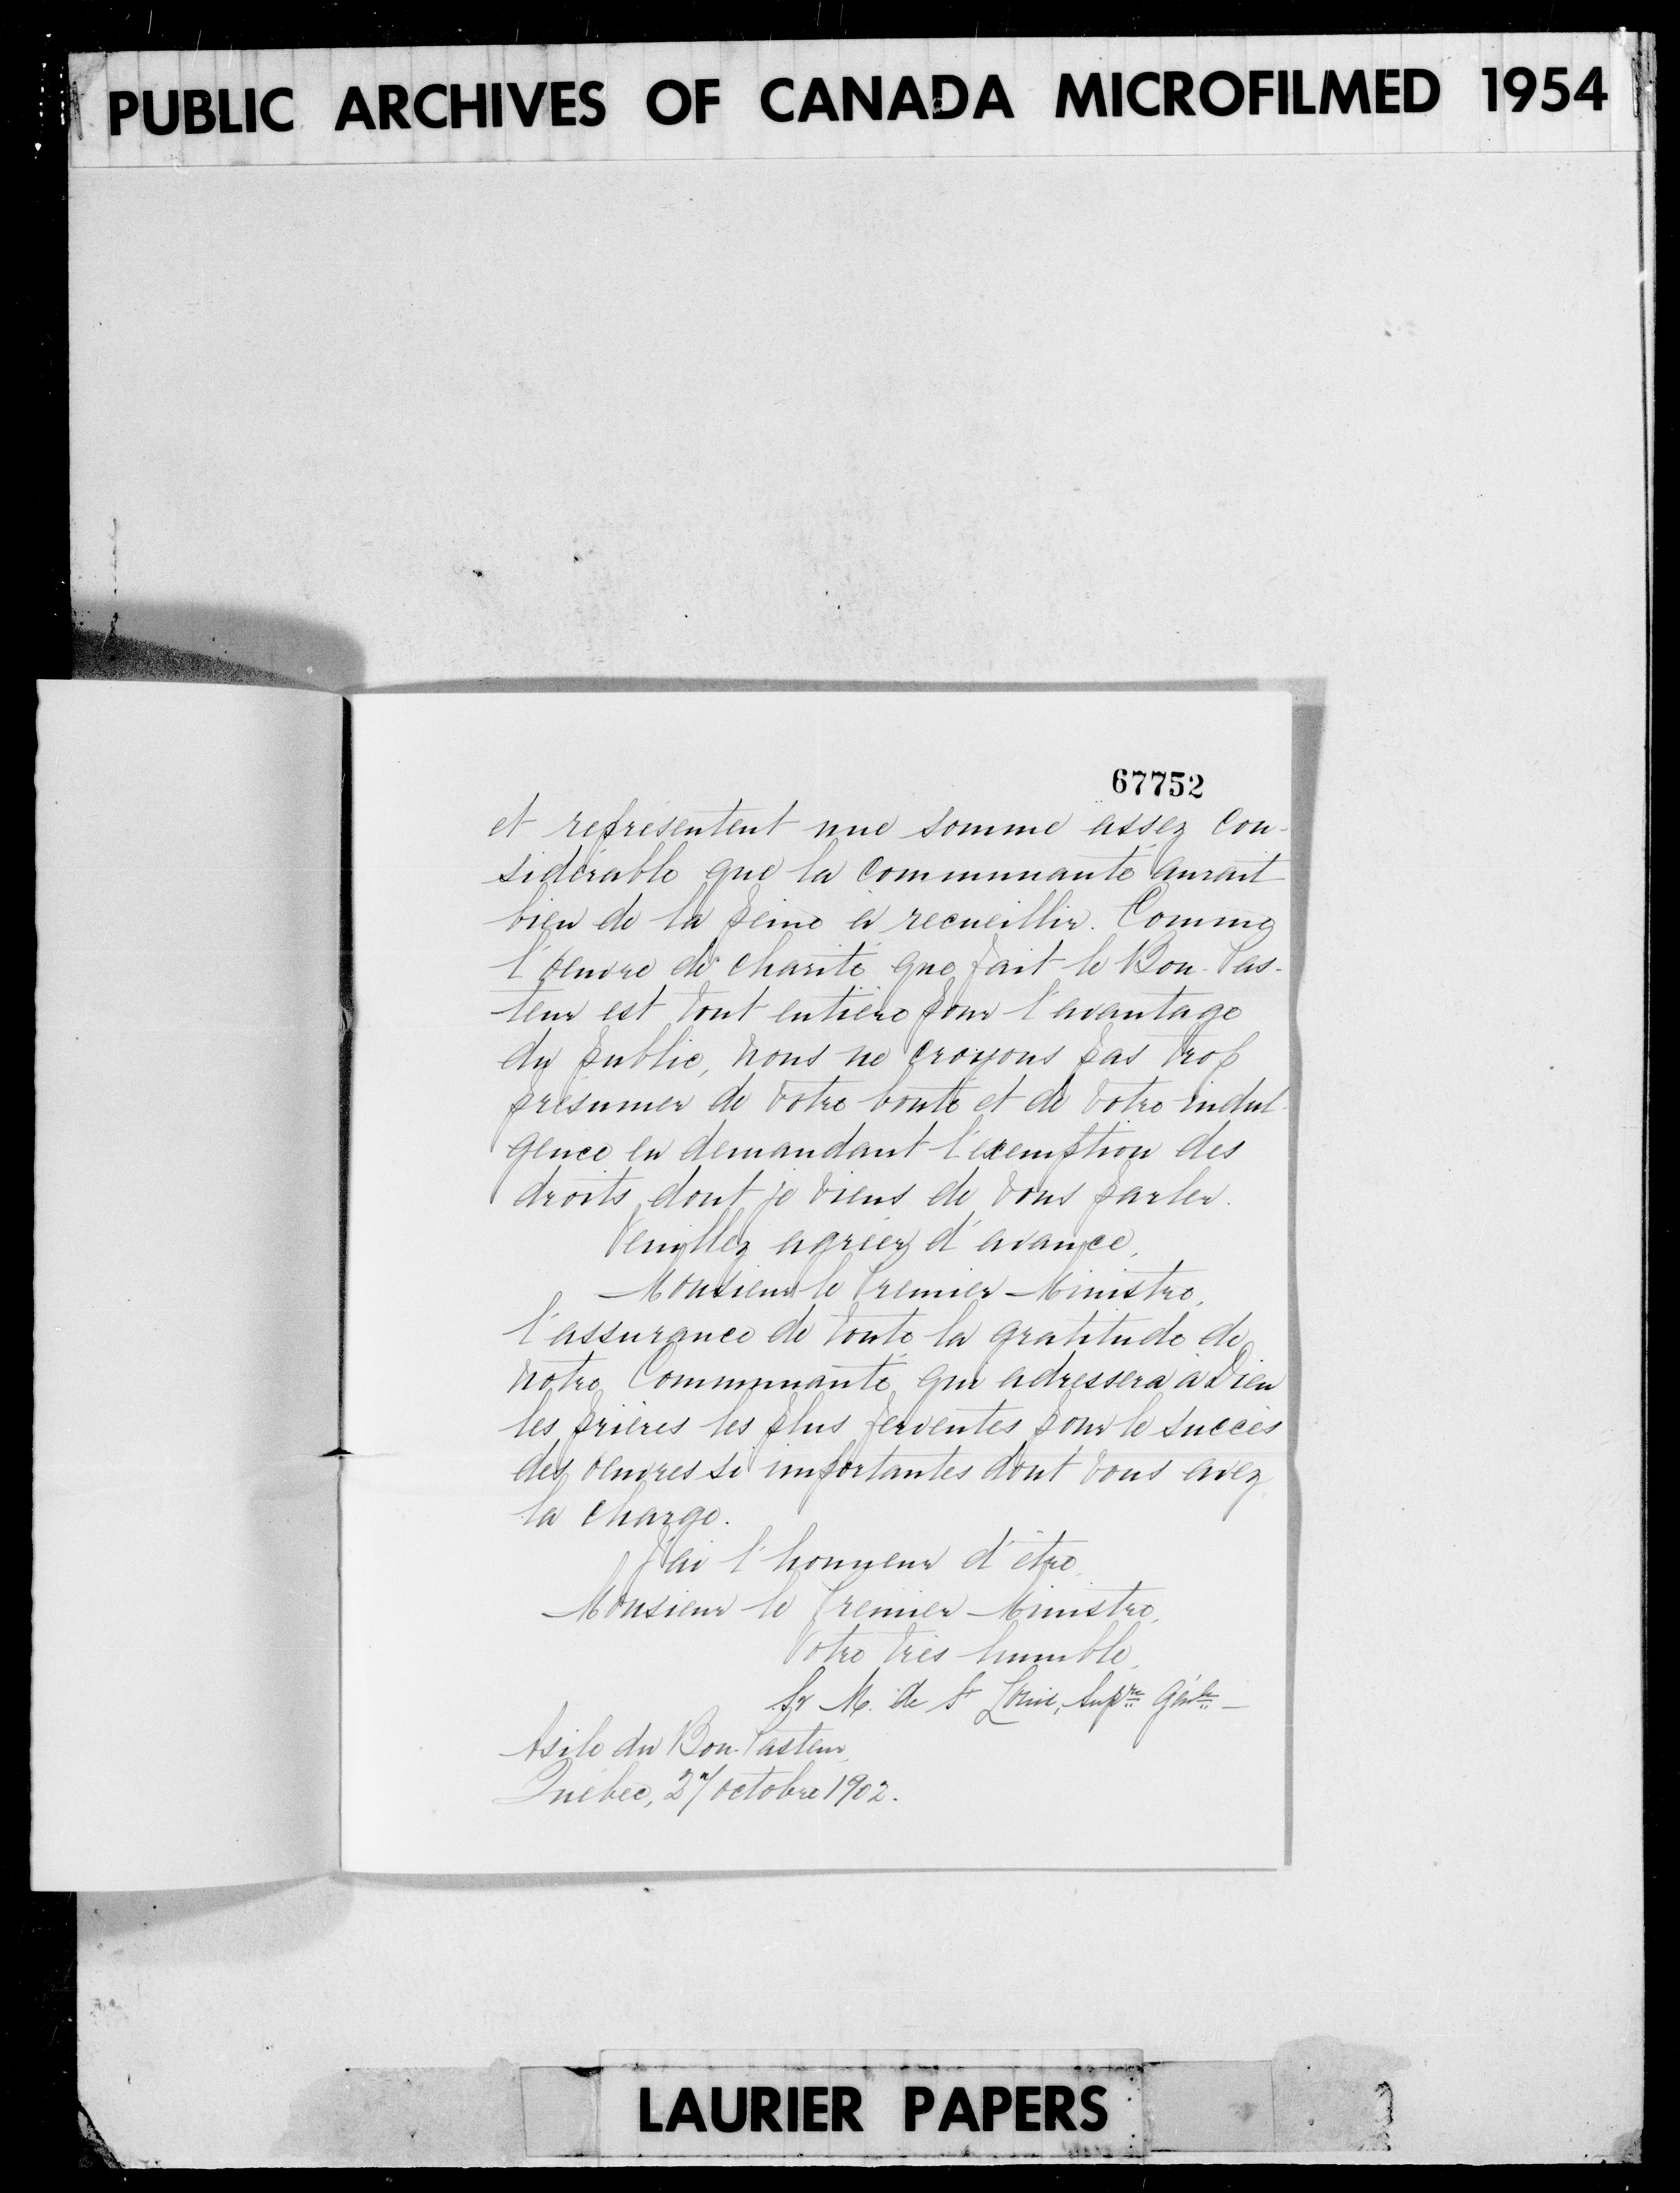 PUBLIC ARCHIVES OF CANADA MICROFILMED 1954
67752
et représentent une somme assez con-
sidérable que la communauté aurait
bien de la peine à recueillir. Comme
l'oeuvre de charité que fait le Bon-Pas-
teur est tout entière pour l'avantage
du public, nous ne croyons pas trop
présumer de votre bonté et de votre indul-
gence en demandant l'exemption des
droits dont je viens de vous parler.
Veuillez agréer d'avance,
Monsieur le Premier Ministre,
l'assurance de toute la gratitude de
notre Communauté qui adressera à Dieu
les prières les plus ferventes pour le succès
des oeuvres si importantes dont vous avez
la charge.
J'ai l'honneur d'être,
Monsieur le Premier Ministre,
Votre très humble,
Sr M. de St Louis, Supre Génle
Asile du Bon-Pasteur,
Québec, 27 octobre 1902.
LAURIER PAPERS